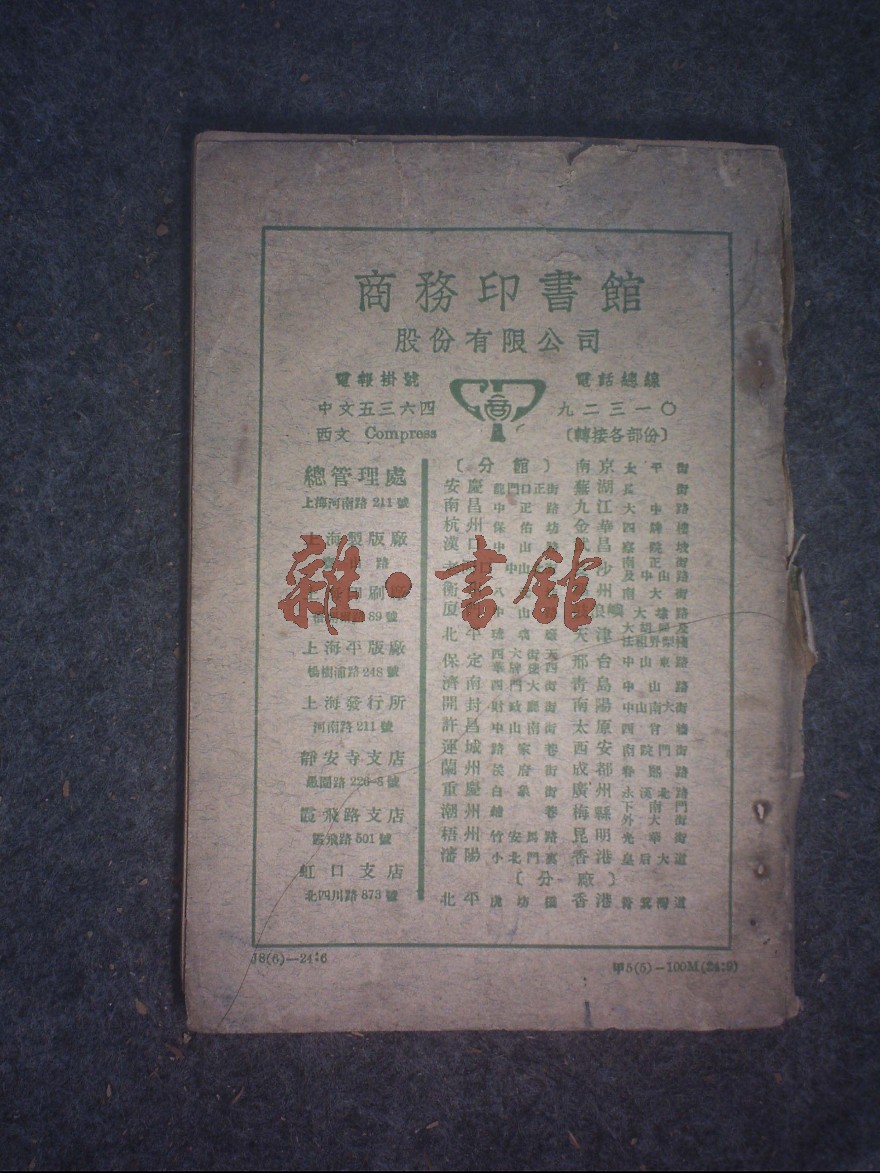 商務印書館
股份有限公司
電報掛號
中文五三六四
西文 Compress
商
電話總線
九二三一〇
〔轉接各部份〕
總管理處
上海河南路 211 號
上海製版廠
路
上海印刷廠
89 號
上海平版廠
楊樹浦路 248 號
上海發行所
河南路 211 號
靜安寺支店
愚園路 226-8 號
霞飛路支店
霞飛路 501 號
虹口支店
北四川路 873 號
〔分館〕
安慶 龍門口正街
南昌 中正路
杭州 保佑坊
漢口 中山路
衡
廈
北平
保定
濟南 西門大街
開封 財政廳街
許昌 中山南街
運城 路家巷
蘭州 侯府街
重慶 白象街
潮州 巷
梧州 竹安馬路
瀋陽 小北門裏
南京 太平街
蕪湖 長街
九江 大中路
金華 四牌樓
昌
南正街
及中山路
南大街
天津
邢台 中山東路
青島 中山路
南陽 中山南大街
太原 西官橋
西安 南院門街
成都 春熙路
廣州 永漢北路
梅縣 下南門外大街
昆明 光華街
香港 皇后大道
〔分廠〕
北平 虎坊橋
香港 筲箕灣道
J8(6)—24:6
甲5(5)—100M(24:9)
雜·書館